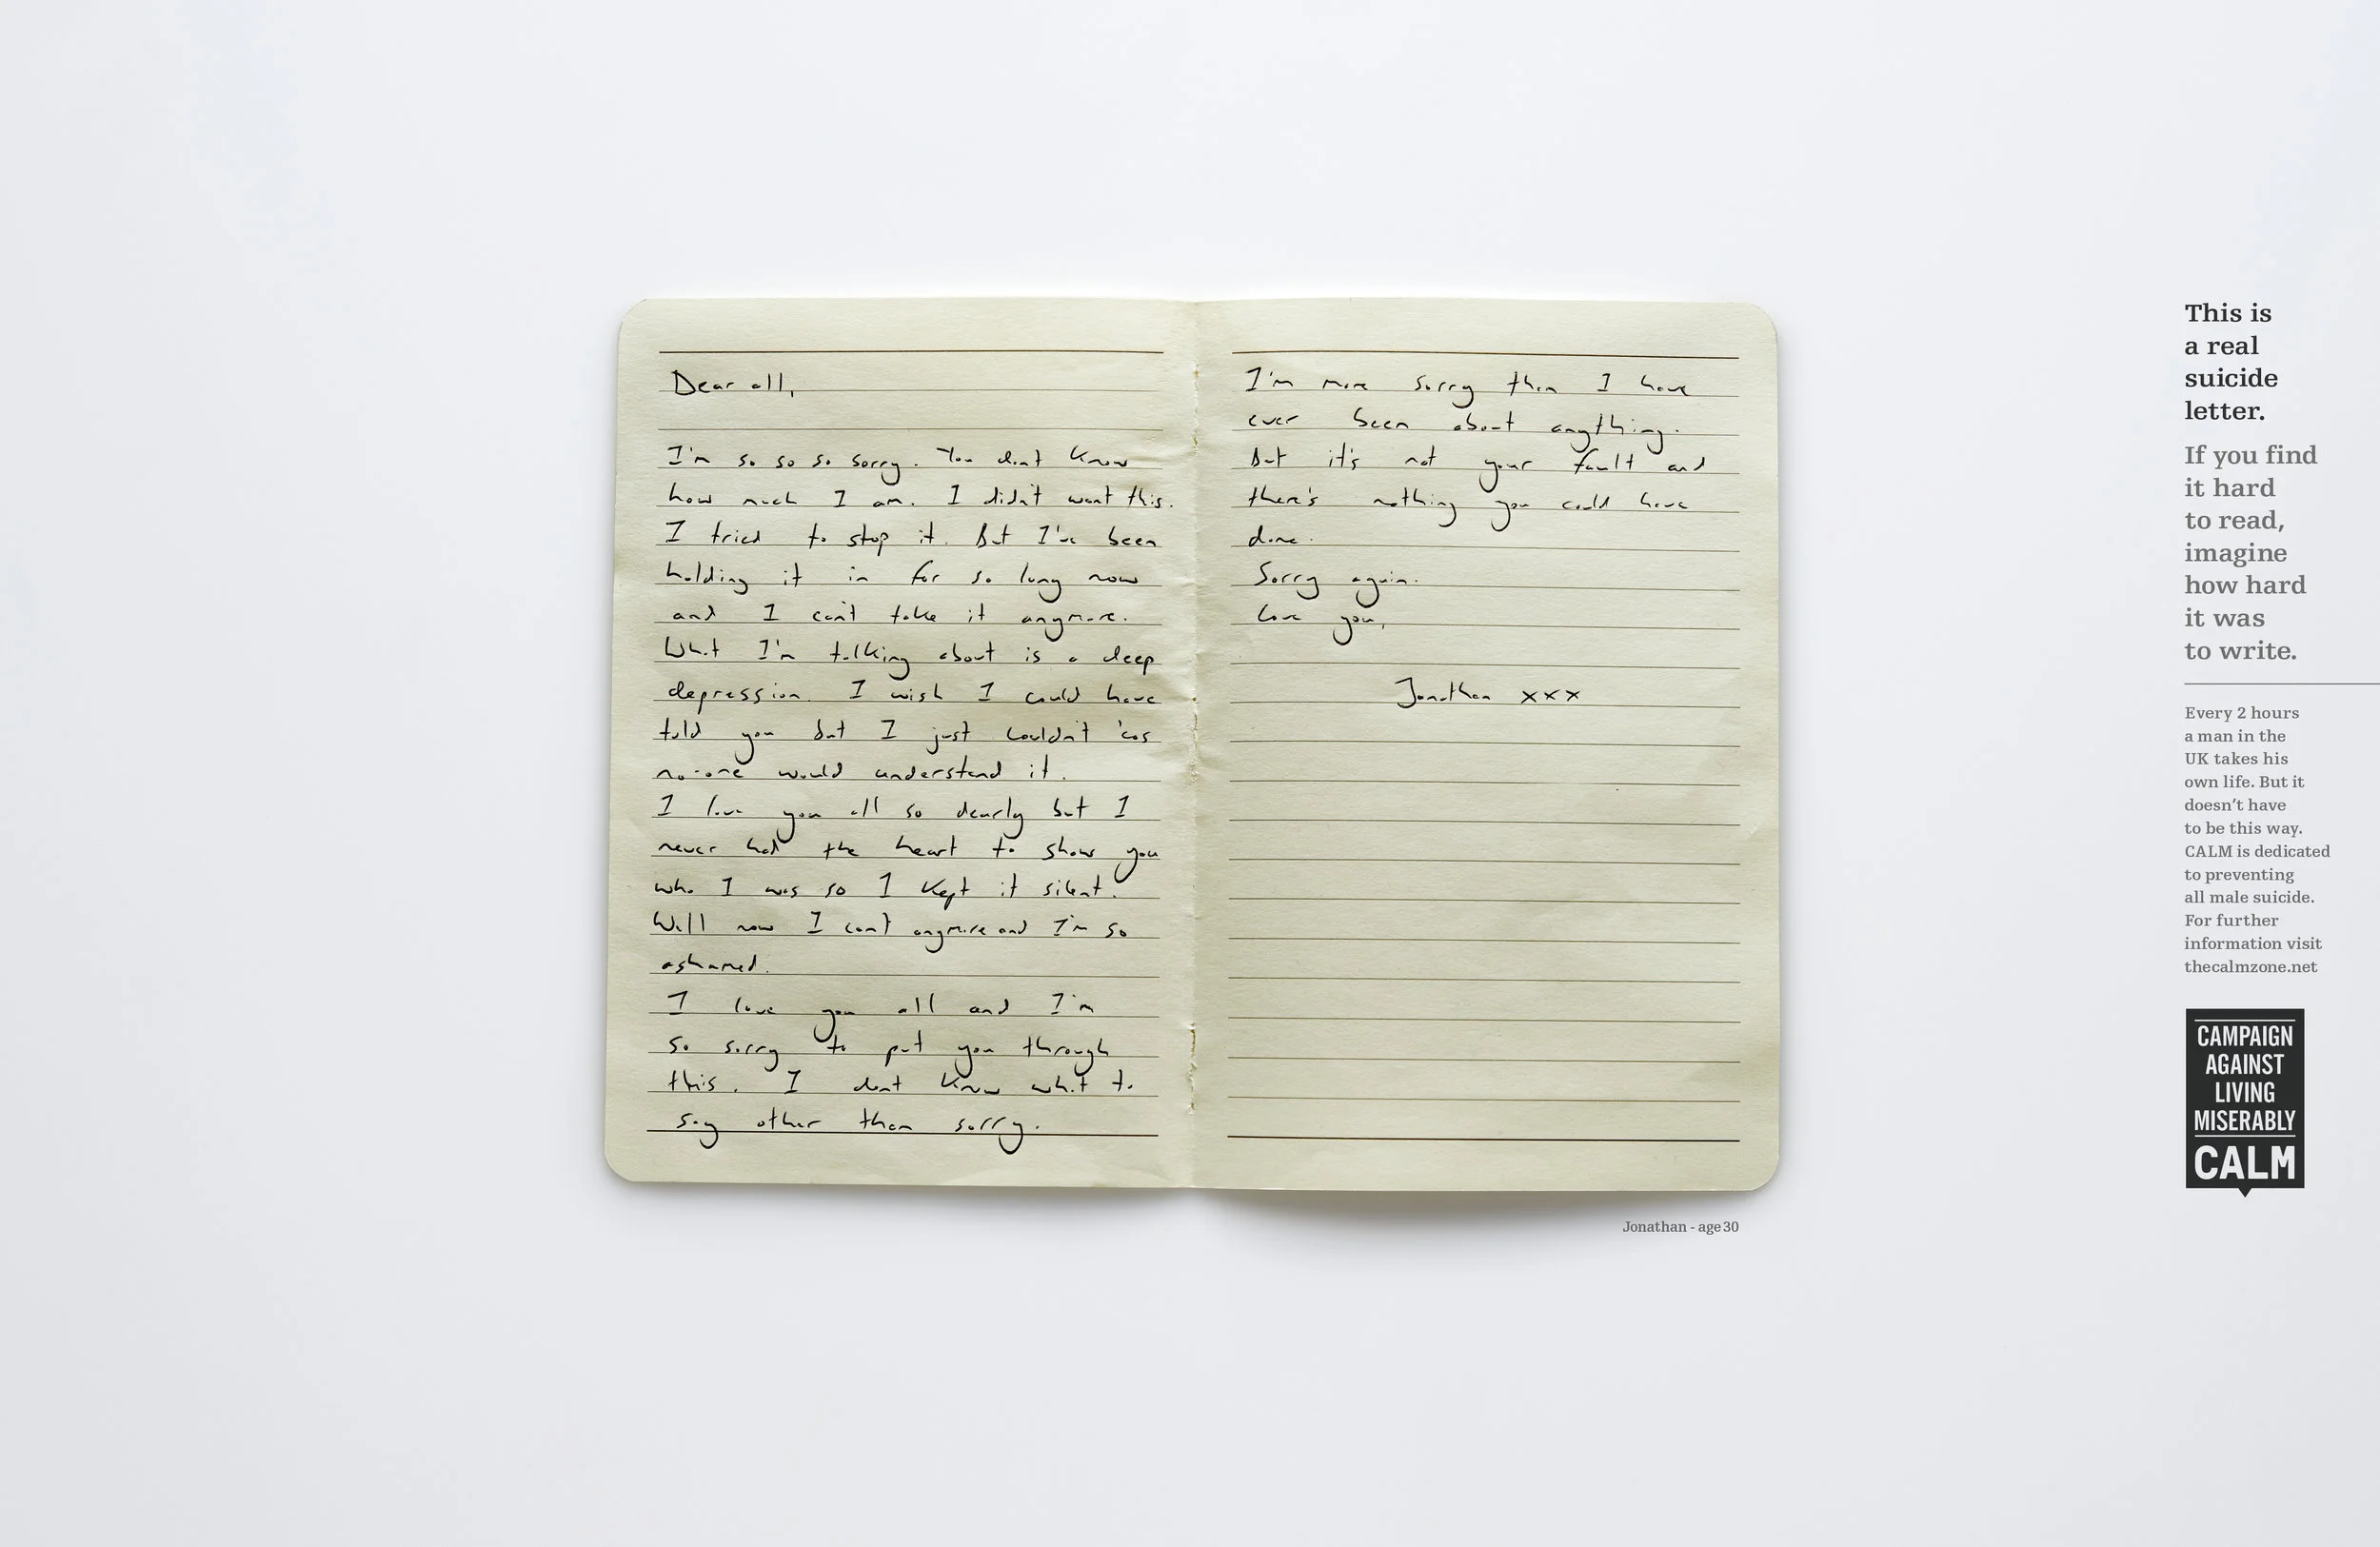 Dear all,
I'm so so so sorry. You don't know
how much I am. I didn't want this.
I tried to stop it. But I've been
holding it in for so long now
and I can't take it anymore.
What I'm talking about is a deep
depression. I wish I could have
told you but I just couldn't 'cos
no-one would understand it.
I love you all so dearly but I
never had the heart to show you
who I was so I kept it silent.
Well now I can't anymore and I'm so
ashamed.
I love you all and I'm
so sorry to put you through
this. I don't know what to
say other than sorry.
I'm more sorry than I have
ever been about anything.
But it's not your fault and
there's nothing you could have
done.
Sorry again.
Love you,
Jonathan xxx
Jonathan - age 30
This is
a real
suicide
letter.
If you find
it hard
to read,
imagine
how hard
it was
to write.
Every 2 hours
a man in the
UK takes his
own life. But it
doesn't have
to be this way.
CALM is dedicated
to preventing
all male suicide.
For further
information visit
thecalmzone.net
CAMPAIGN
AGAINST
LIVING
MISERABLY
CALM